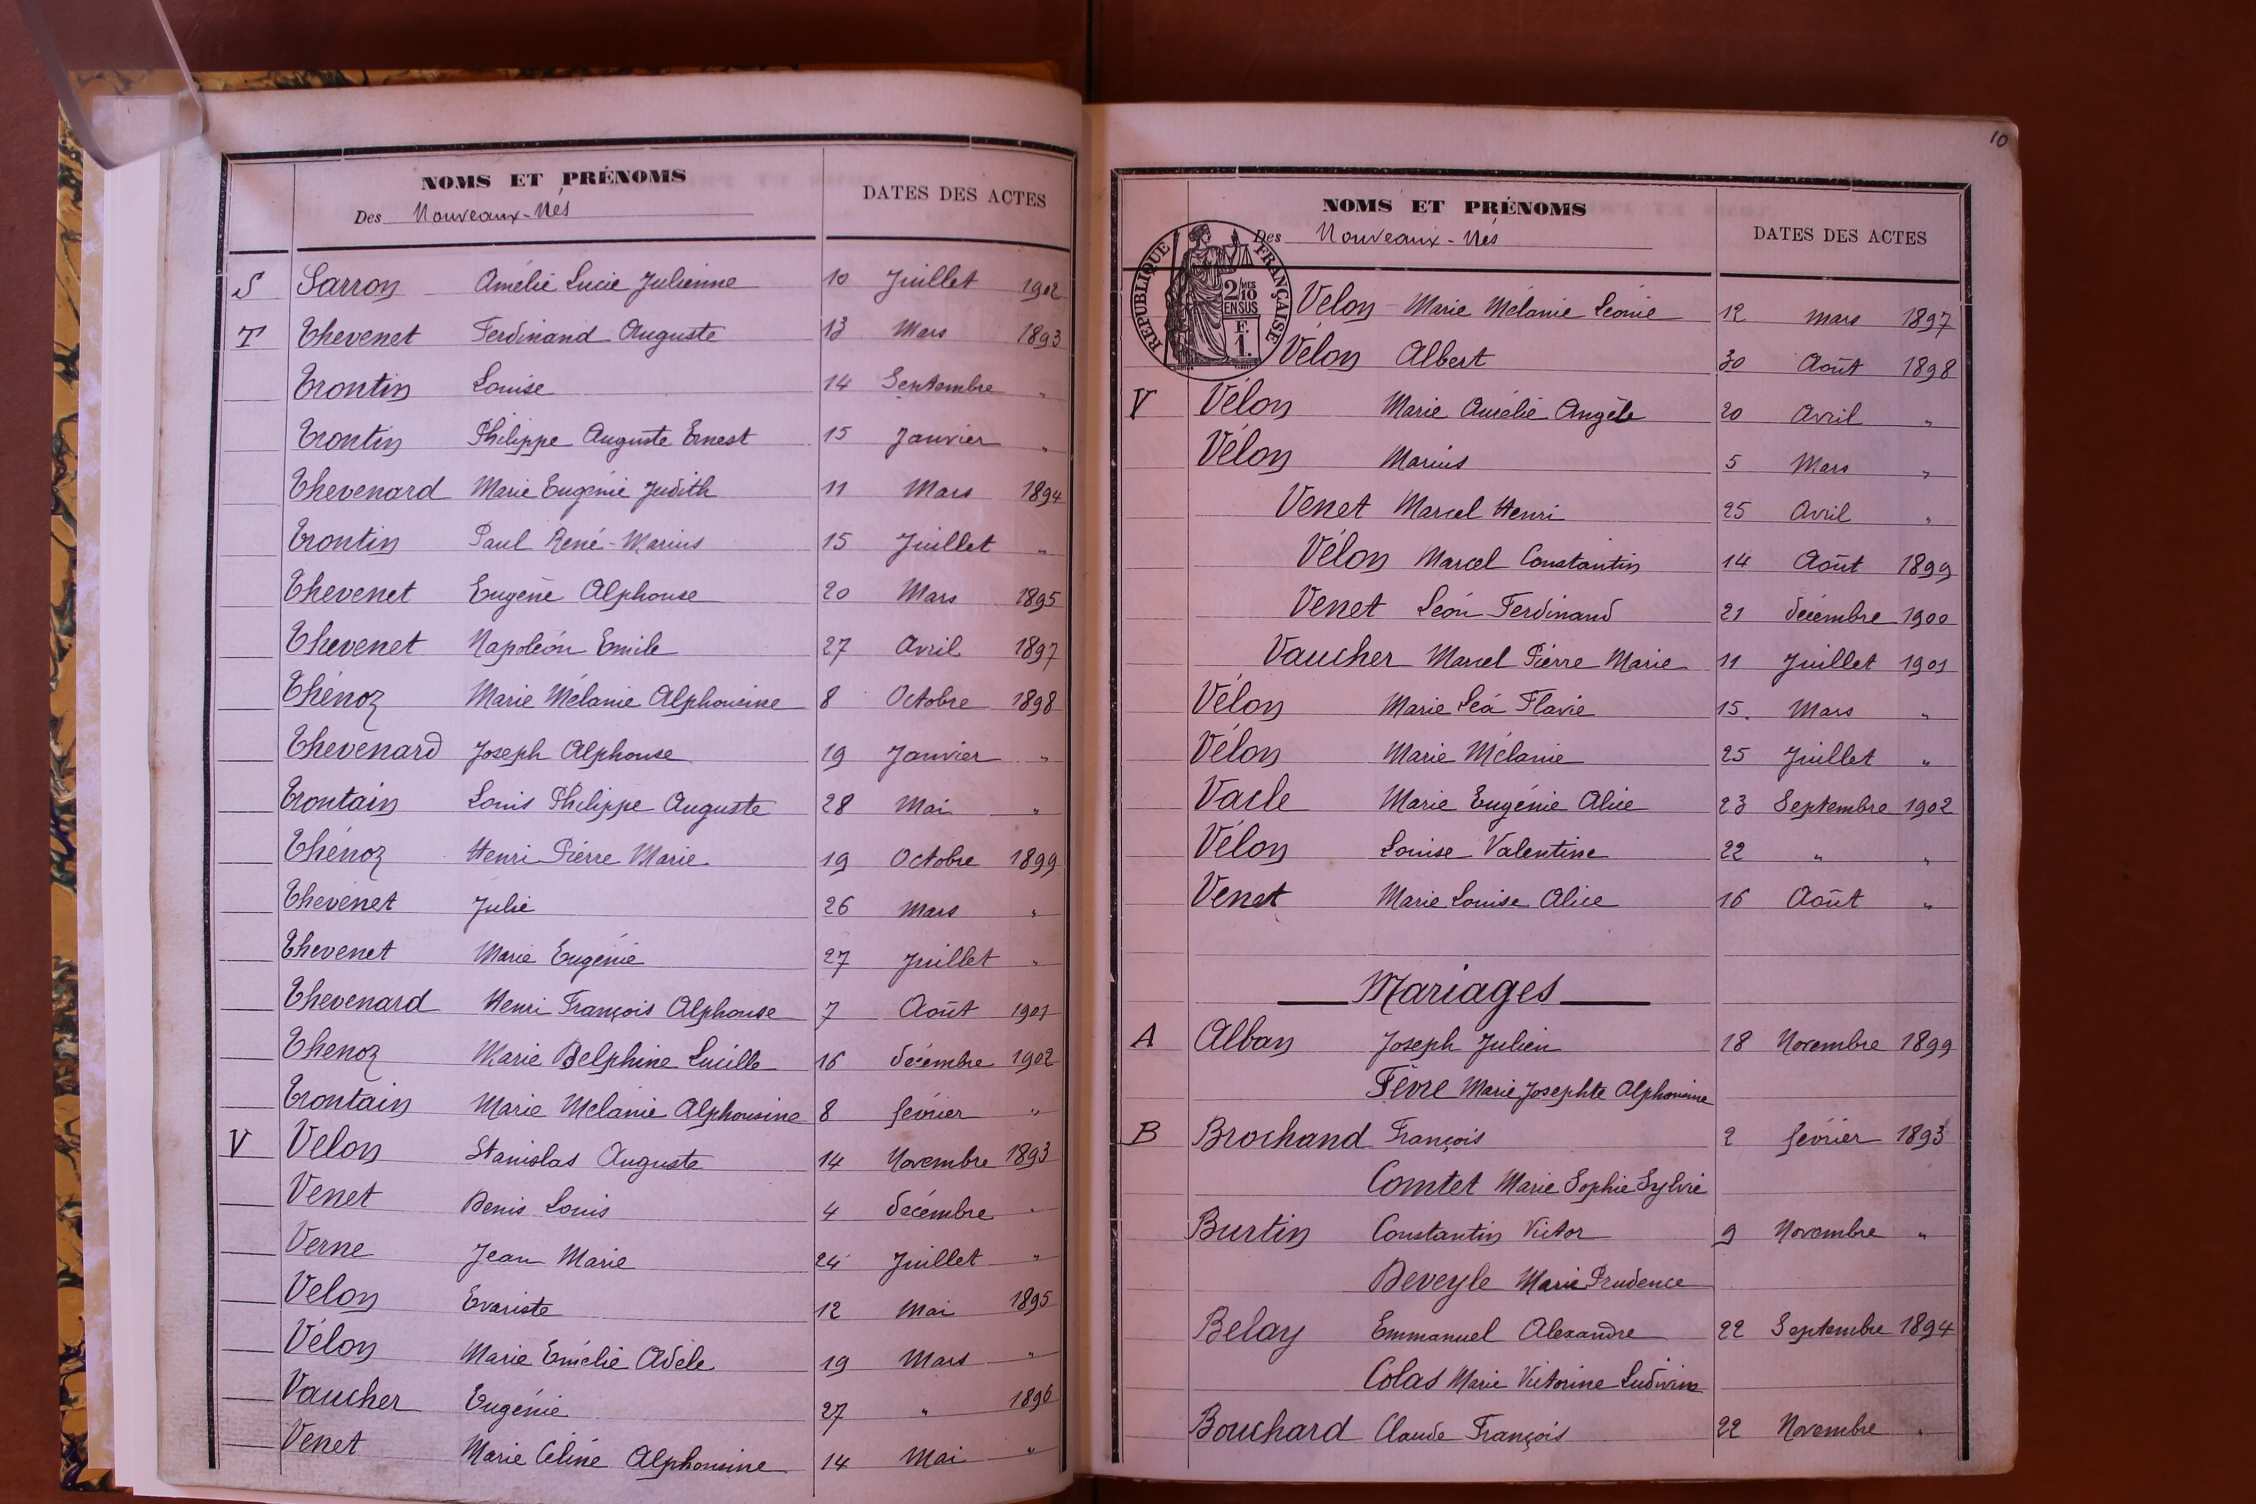 NOMS ET PRÉNOMS
Des Nouveaux-Nés
DATES DES ACTES
S Sarron Amélie Lucie Julienne 10 Juillet 1902
T Thevenet Ferdinand Auguste 13 Mars 1893
Trontin Louise 14 Septembre "
Trontin Philippe Auguste Ernest 15 Janvier "
Thevenard Marie Eugénie Judith 11 Mars 1894
Trontin Paul René-Marius 15 Juillet "
Thevenet Eugène Alphonse 20 Mars 1895
Thevenet Napoléon Emile 27 Avril 1897
Thénoz Marie Mélanie Alphonsine 8 Octobre 1898
Thevenard Joseph Alphonse 19 Janvier "
Trontain Louis Philippe Auguste 28 Mai "
Thénoz Henri Pierre Marie 19 Octobre 1899
Thevenet Julie 26 Mars "
Thevenet Marie Eugénie 27 Juillet "
Thevenard Henri François Alphonse 7 Août 1901
Thenoz Marie Delphine Lucille 16 décembre 1902
Trontain Marie Mélanie Alphonsine 8 février "
V Velon Stanislas Auguste 14 Novembre 1893
Venet Denis Louis 4 décembre "
Verne Jean Marie 24 Juillet "
Velon Evariste 12 Mai 1895
Vélon Marie Emélie Adèle 19 Mars "
Vaucher Eugénie 27 " 1896
Venet Marie Céline Alphonsine 14 Mai "
10
NOMS ET PRÉNOMS
Des Nouveaux-Nés
DATES DES ACTES
RÉPUBLIQUE FRANÇAISE
2/10 MES
EN SUS
F.
1.
Velon Marie Mélanie Léonie 12 mars 1897
Vélon Albert 30 Août 1898
V Vélon Marie Amélie Angèle 20 Avril "
Vélon Marius 5 Mars "
Venet Marcel Henri 25 Avril "
Vélon Marcel Constantin 14 Août 1899
Venet Léon Ferdinand 21 décembre 1900
Vaucher Marcel Pierre Marie 11 Juillet 1901
Vélon Marie Léa Flavie 15 Mars "
Vélon Marie Mélanie 25 Juillet "
Vacle Marie Eugénie Alice 23 Septembre 1902
Vélon Louise Valentine 22 " "
Venet Marie Louise Alice 16 Août "
Mariages
A Alban Joseph Julien 18 Novembre 1899
Fèvre Marie Josephte Alphonsine
B Brochand François 2 février 1893
Comtet Marie Sophie Sylvie
Burtin Constantin Victor 9 Novembre "
Deveyle Marie Prudence
Belay Emmanuel Alexandre 22 Septembre 1894
Colas Marie Victorine Ludivine
Bouchard Claude François 22 Novembre "